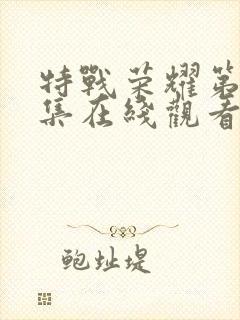 特戰荣耀第
集在綫觀看
鲍址堤